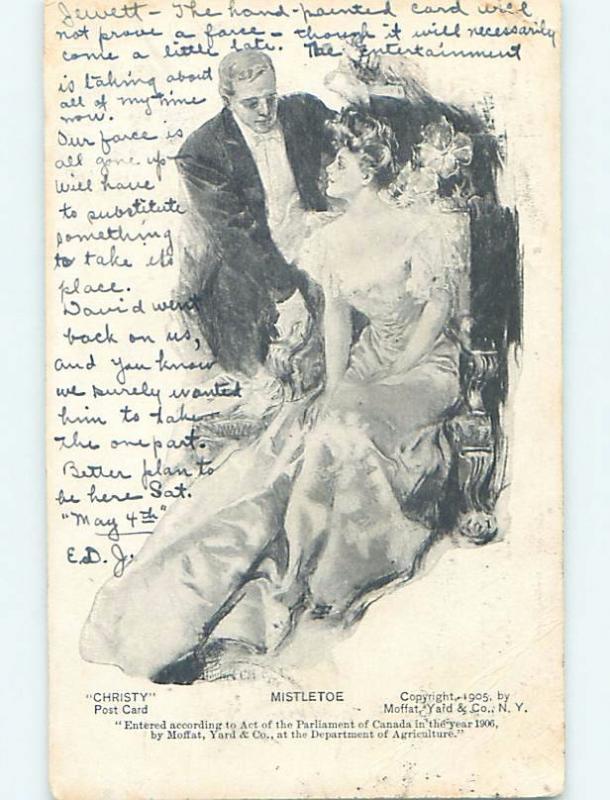 Jewett - The hand-painted card will
not prove a farce - though it will necessarily
come a little late. The entertainment
is taking about
all of my time
now.
Our farce is
all gone up -
Will have
to substitute
something
to take its
place.
David went
back on us,
and you know
we surely wanted
him to take
the one part.
Better plan to
be here Sat.
"May 4th".
E.D.J.
"CHRISTY"
Post Card
MISTLETOE
Copyright, 1905, by
Moffat, Yard & Co., N. Y.
"Entered according to Act of the Parliament of Canada in the year 1906,
by Moffat, Yard & Co., at the Department of Agriculture."